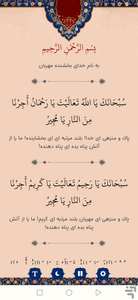 بِسْمِ اللَّهِ الرَّحْمَنِ الرَّحِيمِ
به نام خدای بخشنده مهربان
سُبْحَانَكَ يَا اللَّهُ تَعَالَيْتَ يَا رَحْمَانُ أَجِرْنَا
مِنَ النَّارِ يَا مُجِيرُ
پاک و منزهی ای خدا! بلند مرتبه ای ای بخشاینده! ما را از
آتش پناه بده ای پناه دهنده!
سُبْحَانَكَ يَا رَحِيمُ تَعَالَيْتَ يَا كَرِيمُ أَجِرْنَا
مِنَ النَّارِ يَا مُجِيرُ
پاک و منزهی ای مهربان بلند مرتبه ای کریم! ما را از آتش
پناه بده ای پناه دهنده!